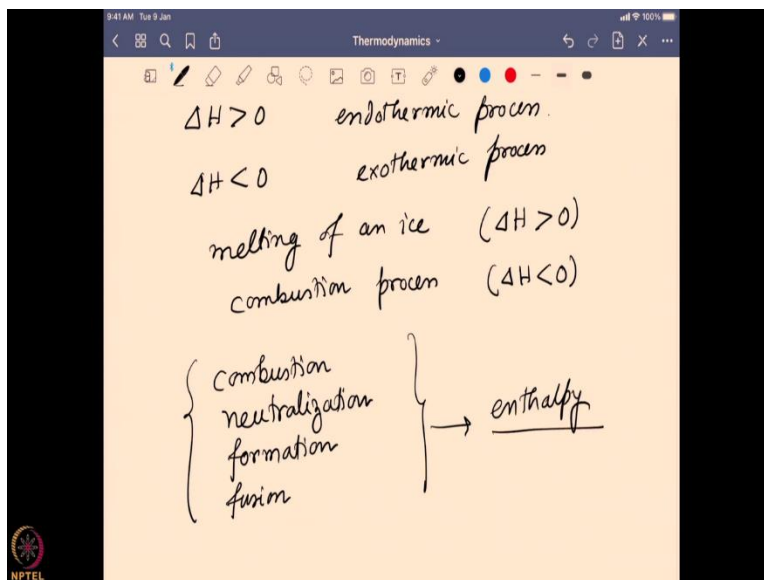 9:41 AM Tue 9 Jan 100%
Thermodynamics
ΔH > 0 endothermic process.
ΔH < 0 exothermic process
melting of an ice (ΔH > 0)
combustion process (ΔH < 0)
combustion
neutralization
formation
fusion
→ enthalpy
NPTEL